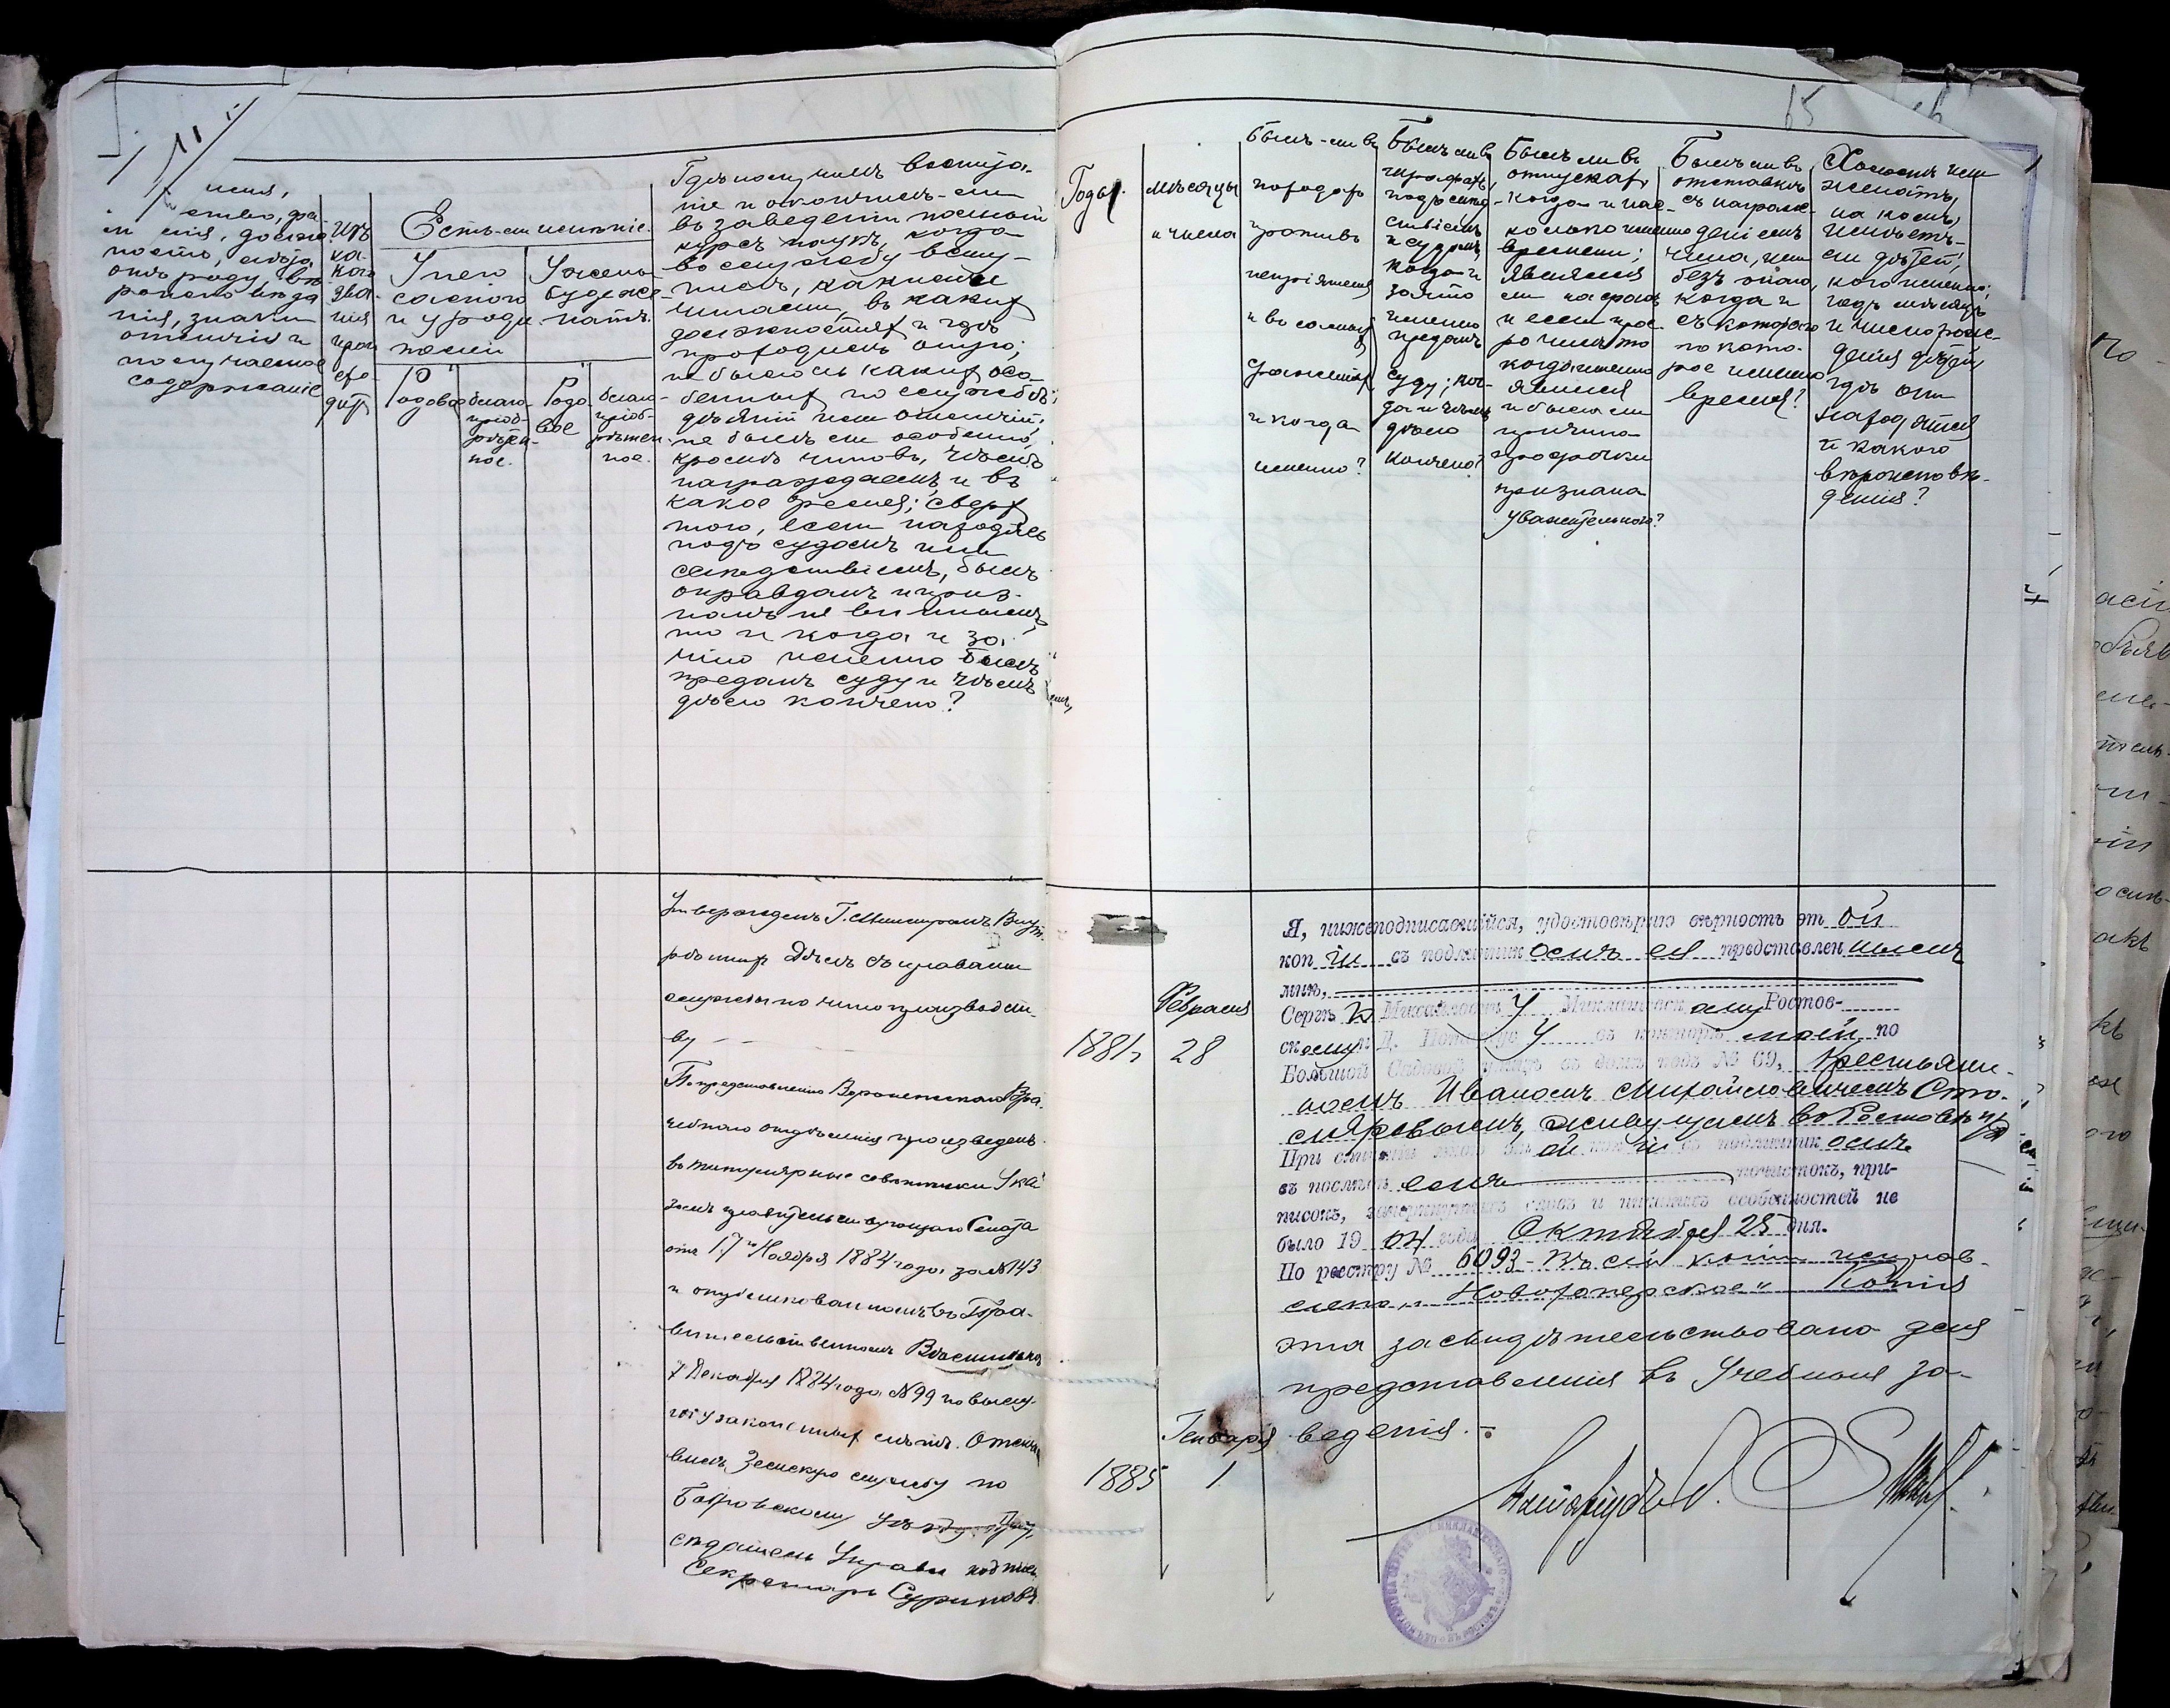 65
имя,
ство, фа
милія, долж
ность, лѣта
отъ роду, вѣ
роисповѣда
нія, знаки
отличія и
получаемое
содержаніе
Изъ
ка-
кого
зва-
нія
прои
схо-
дитъ
Есть-ли имѣніе.
У него
самого
и у роди
телей
У жены
буде же-
натъ.
Родовое
благо-
пріоб-
рѣтен-
ное.
Родо
вое
благо-
пріоб-
рѣтен-
ное.
Гдѣ получилъ воспита-
ніе и окончилъ-ли
въ заведеніи полный
курсъ наукъ, когда
въ службу всту-
пилъ, какими
чинами, въ какихъ
должностяхъ и гдѣ
проходилъ оную;
не было-ль какихъ осо-
бенныхъ по службѣ
дѣяній или отличій;
не былъ ли особенно,
кромѣ чиновъ, чѣмъ
награждаемъ и въ
какое время; сверхъ
того, если находясь
подъ судомъ или
слѣдствіемъ, былъ
оправданъ и приз-
нанъ не виннымъ,
то и когда и за
что именно былъ
преданъ суду и чѣмъ
дѣло кончено?
Годы.
мѣсяцы
и числа
Былъ-ли въ
походахъ
противъ
непріятеля
и въ самыхъ
сраженіяхъ
и когда
именно?
Былъ ли въ
штрафахъ,
подъ слѣд-
ствіемъ
и судомъ,
когда и
за что
именно
преданъ
суду; ког-
да и чѣмъ
дѣло
кончено?
Былъ ли въ
отпускахъ,
когда и на с-
колько именно
времени;
явился
ли на срокъ
и если прос
рочилъ то
когда именно
явился
и была ли
причина
просрочки
признана
уважительною?
Былъ ли въ
отставкѣ
съ награж-
деніемъ
чина, или
безъ онаго,
когда и
съ котораго
по кото-
рое именно
время?
Холостъ или
женатъ,
на комъ,
имѣетъ-
ли дѣтей,
кого именно;
годъ мѣсяцъ
и число рож-
денія дѣтей
гдѣ они
находятся
и какого
вѣроисповѣ-
данія?
Утвержденъ Г. Министромъ Внут-
реннихъ Дѣлъ въ правахъ
службы по чинопроизводст-
ву
По представленію Воронежскаго Вра-
чебнаго отдѣленія произведенъ
въ титулярные совѣтники Ука-
зомъ Правительствующаго Сената
отъ 17го Ноября 1884 года за №143
и опубликованномъ въ Пра-
вительственномъ Вѣстникѣ
7 Декабря 1884 года №99 по выслу-
гѣ узаконенныхъ лѣтъ. Оста-
вилъ Земскую службу по
Бобровскому уѣзду. Пред-
сѣдатель Управы подпис.
Секретарь Суриновъ
Февраля
1881г. 28
Января
1885 1.
Я, нижеподписавшійся, удостовѣряю вѣрность этой
копіи съ подлинникомъ ея представленнымъ
мнѣ,
Сергѣю Михайловичу Миклашевскому Ростов-
скому Нотаріусу въ конторѣ моей, по
Большой Садовой улицѣ въ домѣ подъ № 69, Крестьяни-
номъ Иваномъ Михайловичемъ Сто-
ляровымъ, живущимъ въ Ростовѣ н/Д
При сличеніи мною этой копіи съ подлинникомъ
въ послѣднемъ почистокъ, при-
писокъ, зачеркнутыхъ словъ и никакихъ особенностей не
было 1904 года Октября 25 дня.
По реестру № 6093 - Въ сей копіи исправ-
лено „Новохоперское“ Копія
эта засвидѣтельствована для
представленія въ Учебныя за-
веденія.
Нотаріусъ